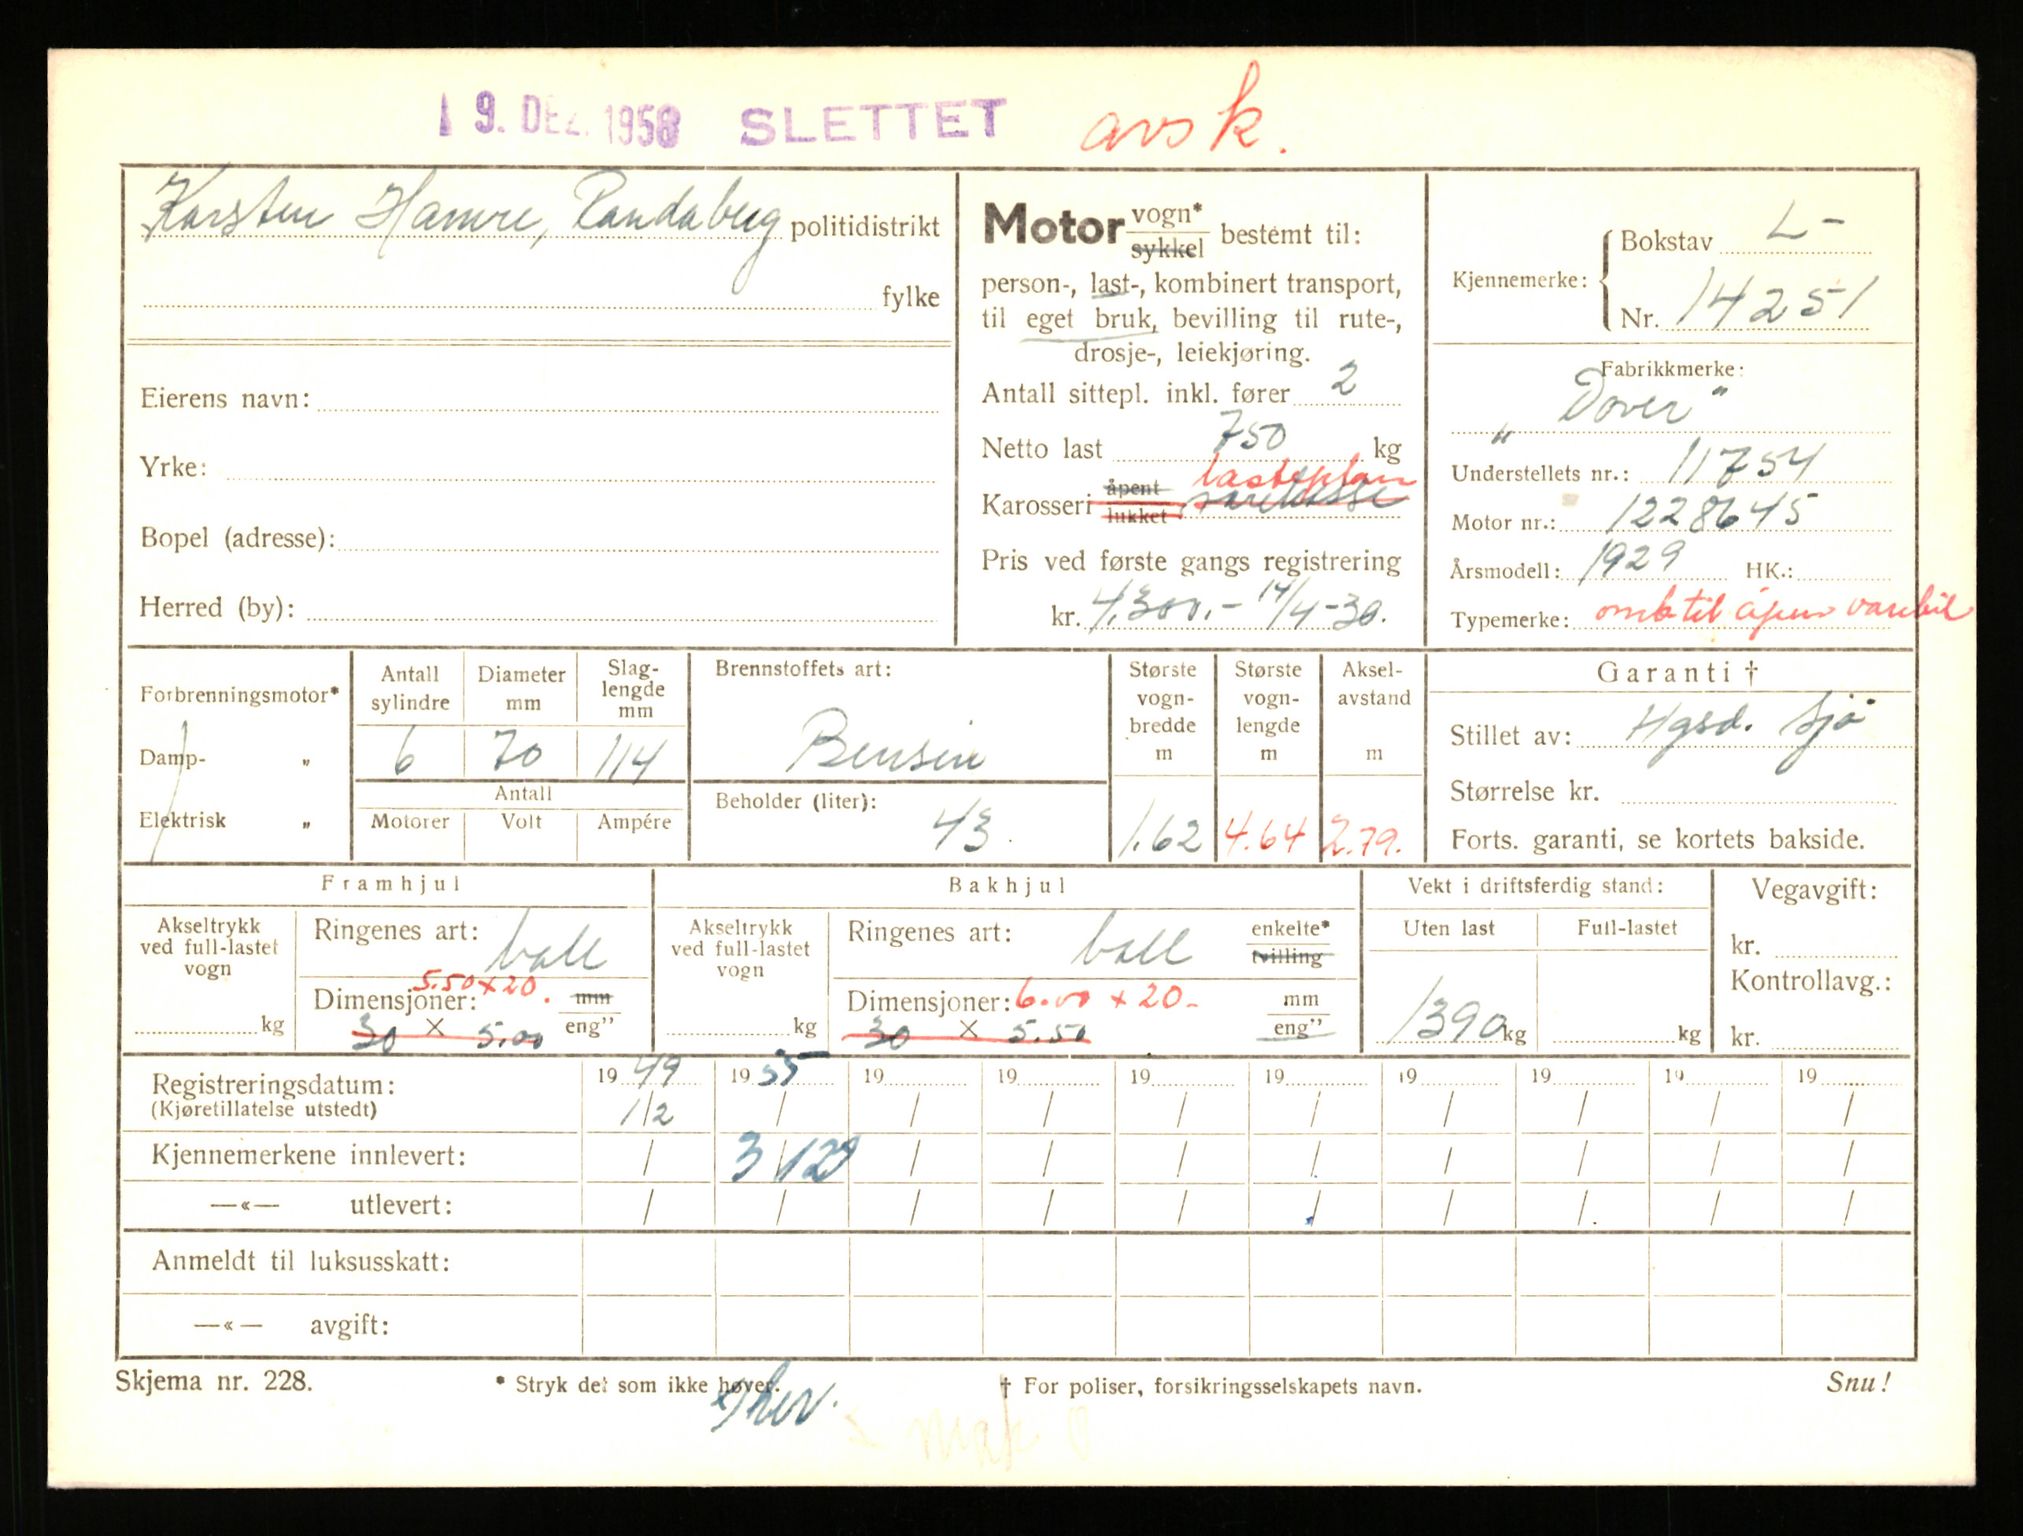 19. DEZ. 1958 SLETTET avsk.
Karsten Hamre, Randaberg politidistrikt
fylke
Eierens navn:
Yrke:
Bopel (adresse):
Herred (by):
Motor vogn* sykkel bestemt til:
person-, last-, kombinert transport,
til eget bruk, bevilling til rute-,
drosje-, leiekjøring.
Antall sittepl. inkl. fører 2
Netto last 750 kg
lasteplan
Karosseri åpent lukket, varekasse
Pris ved første gangs registrering
kr. 4.300,- 14/4-30.
Kjennemerke: Bokstav L-
Nr. 14251
Fabrikkmerke:
"Dover"
Understellets nr.: 11754
Motor nr.: 1228645
Årsmodell: 1929 HK.:
Typemerke: omb til åpen varebil
Forbrenningsmotor*
Damp- "
Elektrisk "
Antall sylindre Diameter mm Slag- lengde mm
6 70 114
Antall
Motorer Volt Ampére
Brennstoffets art:
Bensin
Beholder (liter):
43.
Største vogn- bredde m
1.62
Største vogn- lengde m
4.64
Aksel- avstand m
2.79.
Garanti †
Stillet av: Hgsd. Sjö
Størrelse kr.
Forts. garanti, se kortets bakside.
Framhjul
Akseltrykk ved full-lastet vogn
kg
Ringenes art: ball
5.50 x 20.
Dimensjoner: mm
30 x 5.00 eng"
Bakhjul
Akseltrykk ved full-lastet vogn
kg
Ringenes art: ball enkelte* tvilling
Dimensjoner: 6.00 x 20- mm
30 x 5.50 eng"
Vekt i driftsferdig stand:
Uten last Full-lastet
1390 kg kg
Vegavgift:
kr.
Kontrollavg.:
kr.
Registreringsdatum: 19 49 19 55 19 19 19 19 19 19 19 19
(Kjøretillatelse utstedt) 1/2 / / / / / / / / /
Kjennemerkene innlevert: / 3/12 / / / / / / / /
—«— utlevert: / / / / / / / / / /
Anmeldt til luksusskatt:
—«— avgift:
Skjema nr. 228. * Stryk det som ikke høver. † For poliser, forsikringsselskapets navn. Snu!